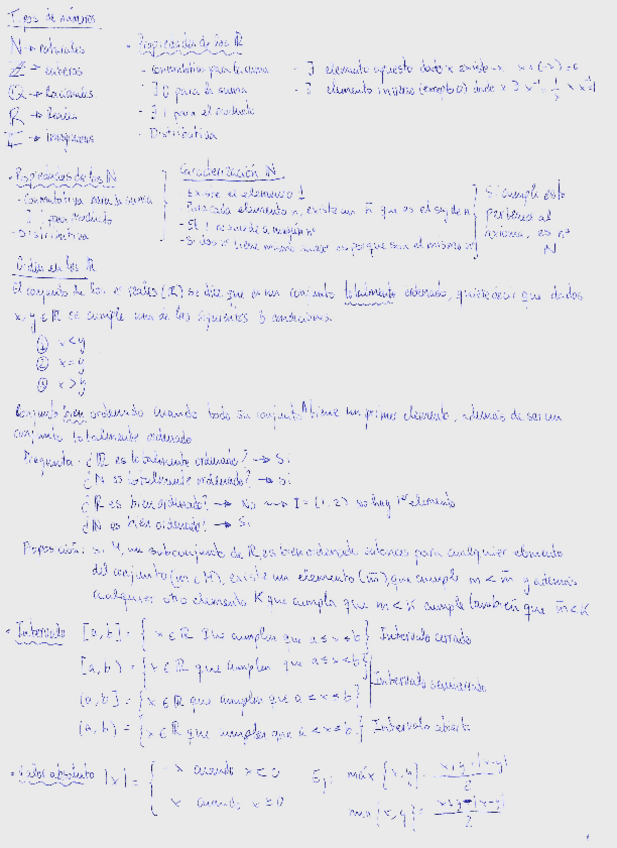 Tipos de números
N → naturales
Z → enteros
Q → Racionales
R → Reales
I → Irracionales
- Propiedades de los R
- Conmutativa para la suma
- ∃ 0 para la suma
- ∃ 1 para el producto
- Distributiva
- ∃ elemento opuesto dado x existe -x, x+(-x)=0
- ∃ elemento inverso (excepto 0) dado x ∃ x⁻¹ = 1/x
- Propiedades de los N
- Conmutativa para la suma
- ∃ 1 para producto
- Distributiva
Caracterización N
- Existe el elemento 1
- Para cada elemento n, existe un n̄ que es el sig de n
- El 1 no sigue a ningún nº
- Si dos nº tiene mismo es porque son el mismo nº
Si cumple esto
al
axioma, es nº
N
Orden en los R
El conjunto de los nº reales (R) se dice que es un conjunto totalmente ordenado, quiere decir que dados
x, y ∈ R se cumple una de las siguientes 3 condiciones
① x < y
② x = y
③ x > y
Conjunto bien ordenado cuando todo su conjunto A tiene un primer elemento, además de ser un
conjunto totalmente ordenado
Pregunta - ¿R es totalmente ordenado? → Si
¿N es totalmente ordenado? → Si
¿R es bien ordenado? → No → I = (1,2) no hay 1er elemento
¿N es bien ordenado? → Si
Proposición: si M, un subconjunto de R, es bien ordenado entonces para cualquier elemento
del conjunto (m ∈ M), existe un elemento (m̄) que cumple m < m̄ y además
cualquier otro elemento K que cumpla que m < K cumple también que m̄ < K
- Intervalo [a, b] = { x ∈ R que cumplen que a ≤ x ≤ b } Intervalo cerrado
[a, b) = { x ∈ R que cumplen que a ≤ x < b }
(a, b] = { x ∈ R que cumplen que a < x ≤ b } Intervalo semicerrado
(a, b) = { x ∈ R que cumplen que a < x < b } Intervalo abierto
- Valor absoluto |x| = { -x cuando x < 0
x cuando x ≥ 0
Ej: máx {x, y} = x+y+|x-y| / 2
min {x, y} = x+y-|x-y| / 2